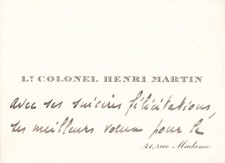 Lt COLONEL HENRI MARTIN
avec ses sincères félicitations,
ses meilleurs voeux pour le
41, rue Madame